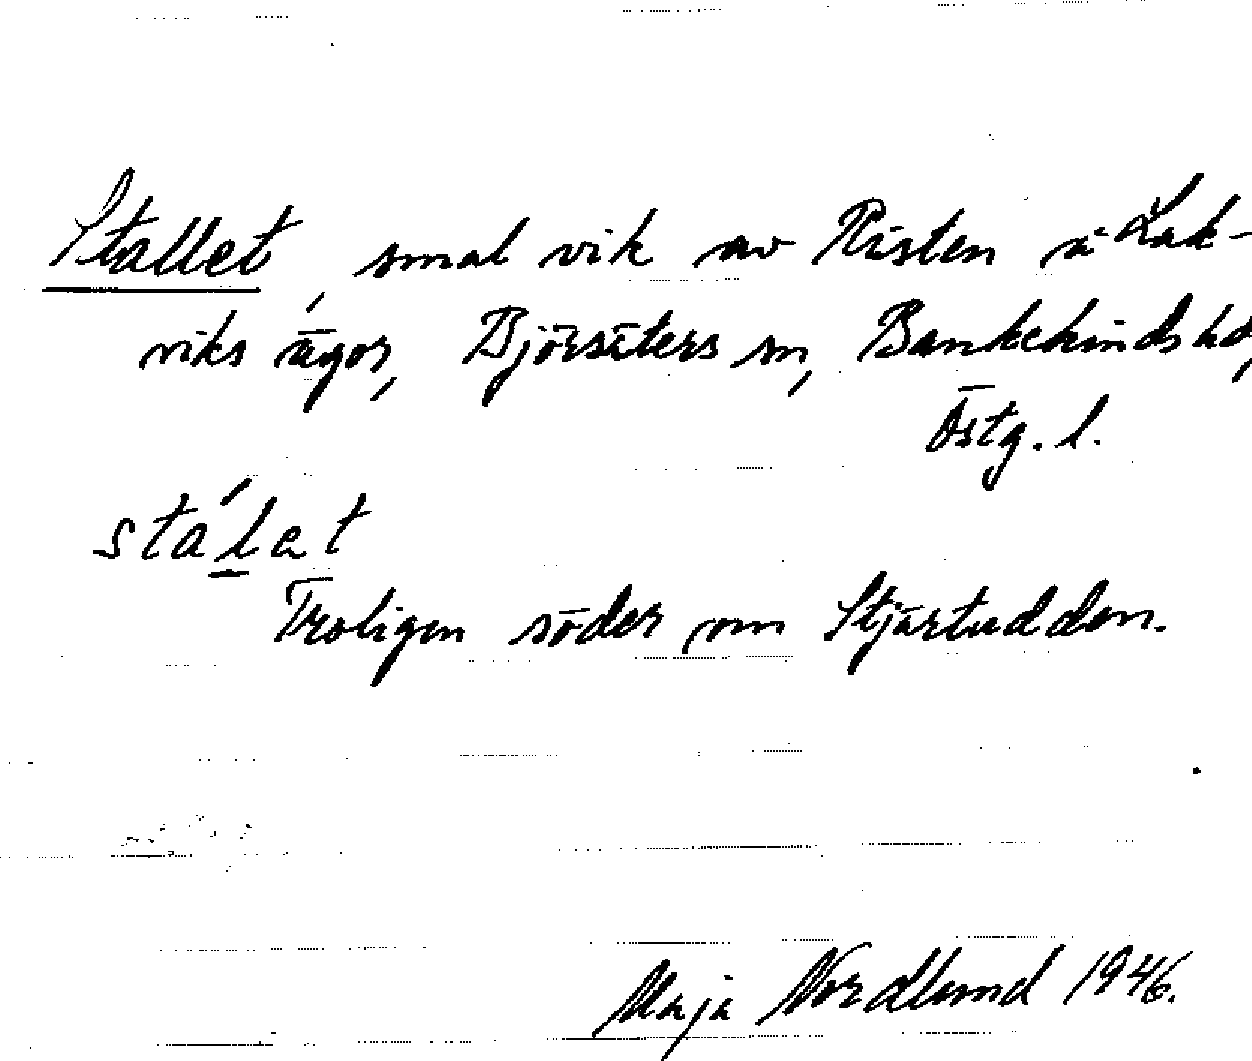 Stallet, smal vik av Risten å Lak-
viks ägor, Björsäters sn, Bankekinds hd,
Östg. l.
stálet
Troligen söder om Stjärtudden.
Maja Nordlund 1946.